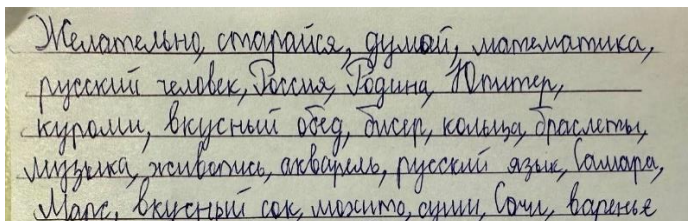 Желательно, старайся, думай, математика,
русский человек, Россия, Родина, Юпитер,
куроми, вкусный обед, бисер, кольца, браслеты,
музыка, живопись, акварель, русский язык, Самара,
Марс, вкусный сок, мохито, суши, Сочи, варенье